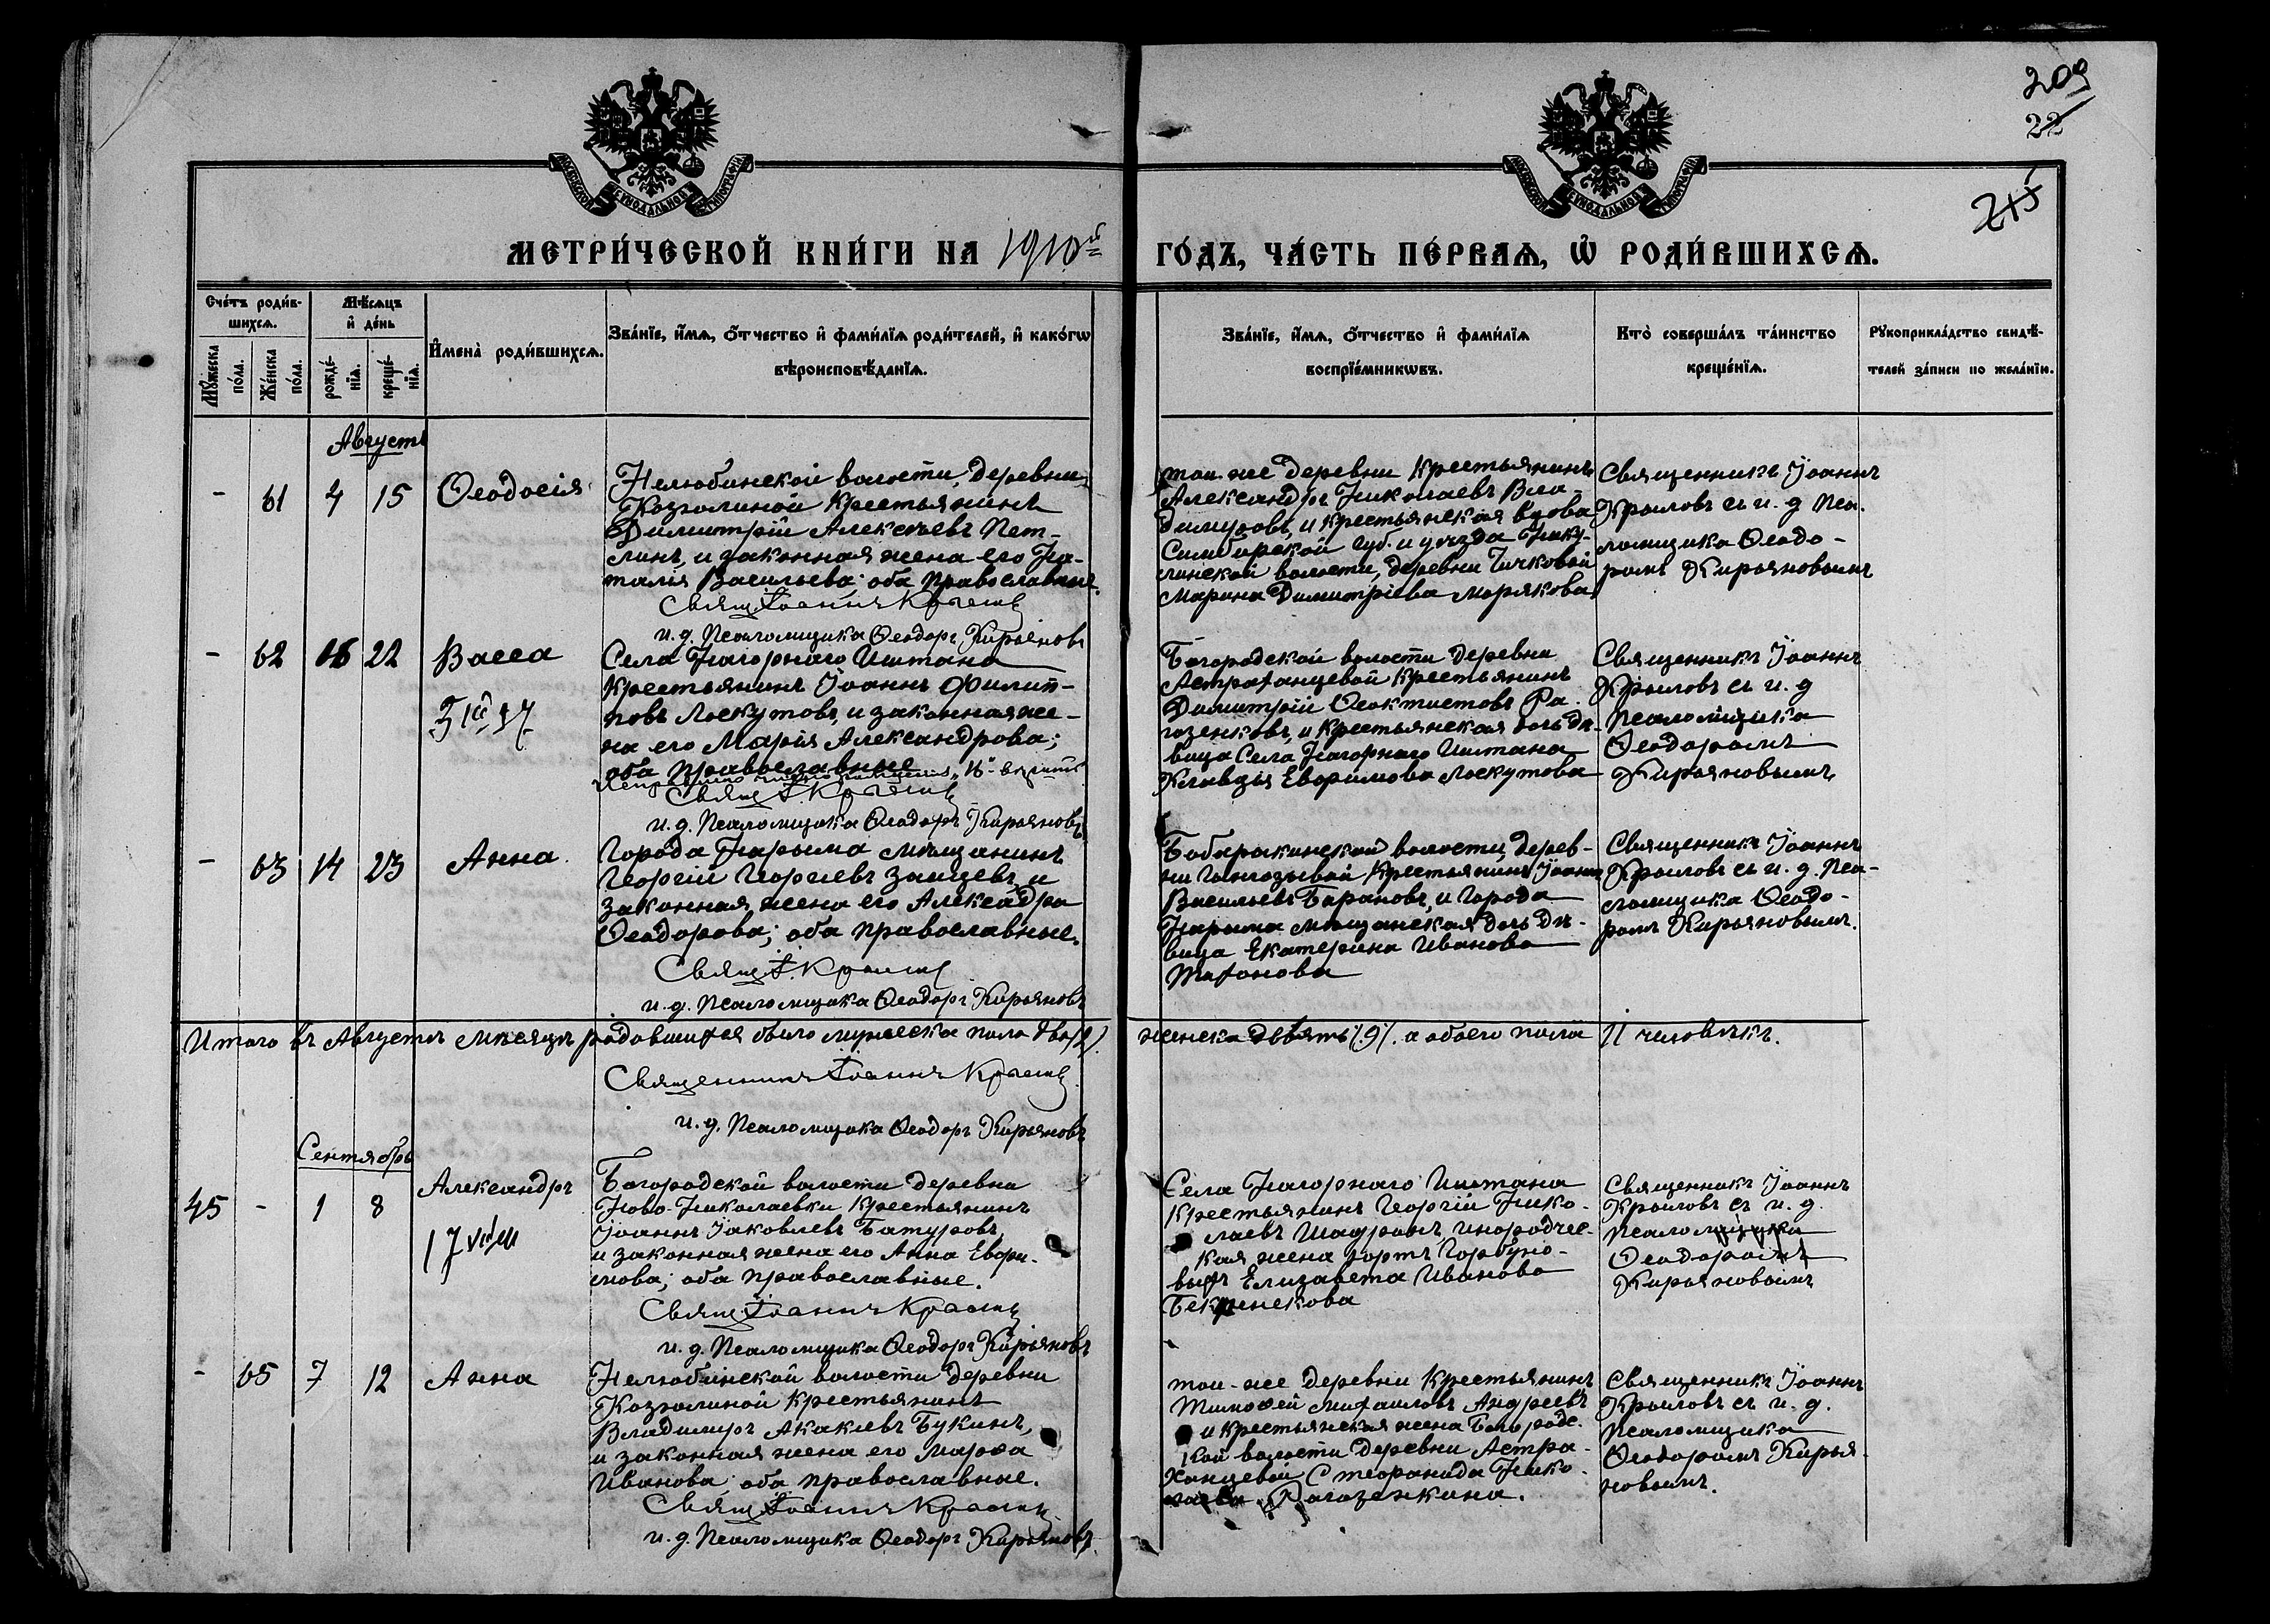 209
22
215
МОСКОВСКОЙ СѴНОДАЛЬНОЙ ТИПОГРАФІИ
МОСКОВСКОЙ СѴНОДАЛЬНОЙ ТИПОГРАФІИ
МЕТРИ́ЧЕСКОЙ КНИ́ГИ НА 1910й ГО́ДЪ, ЧА́СТЬ ПЕ́РВАѦ, Ѡ҆ РОДИ́ВШИХСѦ.
Сче́тъ роди́в-
шихсѧ.
Мꙋжеска
по́ла.
Же́нска
по́ла.
Мѣ́сѧцъ
и҆ де́нь
рожде́-
нїѧ.
креще́-
нїѧ.
И҆мена̀ роди́вшихсѧ.
Зва́нїе, и҆́мѧ, ѻ҆́тчество и҆ фами́лїѧ роди́телей, и҆ како́гѡ
вѣроисповѣ́данїѧ.
Зва́нїе, и҆́мѧ, ѻ҆́тчество и҆ фами́лїѧ
воспрїе́мникѡвъ.
Кто̀ соверша́лъ та́инство
креще́нїѧ.
Рꙋкоприкла́дство свидѣ́-
телей за́писи по жела́нїю.
Августъ
- 61 4 15 Ѳеодосія
Нелюбинской волости, деревни
Козюлиной крестьянинъ
Димитрій Алексѣевъ Пет-
линъ, и законная жена его На-
талія Васильева; оба православные.
Свящ. Іоаннъ Крыловъ
и. д. Псаломщика Ѳеодоръ Кирьяновъ
той-же деревни крестьянинъ
Александръ Николаевъ Вла-
димировъ, и крестьянская вдова
Симбирской губ. и уѣзда Нику-
линской волости, деревни Тичковой
Марина Димитріева Морякова
Священникъ Іоаннъ
Крыловъ съ и. д. Пса-
ломщика Ѳеодо-
ромъ Кирьяновымъ
- 62 16 22 Васса
Села Нагорнаго Иштана
крестьянинъ Іоаннъ Филип-
повъ Лоскутовъ, и законная же-
на его Марія Александрова;
оба православные
Свящ. І. Крыловъ
и. д. Псаломщика Ѳеодоръ Кирьяновъ
Богородской волости деревни
Астраханцевой крестьянинъ
Димитрій Ѳеоктистовъ Ра-
гозенковъ, и крестьянская дочь дѣ-
вица Села Нагорнаго Иштана
Клавдія Евѳимова Лоскутова
Священникъ Іоаннъ
Крыловъ съ и. д
Псаломщика
Ѳеодоромъ
Кирьяновымъ
- 63 14 23 Анна.
Города Нарыма мѣщанинъ
Георгій Георгіевъ Зайцевъ, и
законная жена его Алексадра
Ѳеодорова; оба православные.
Свящ. І. Крыловъ
и. д. Псаломщика Ѳеодоръ Кирьяновъ
Бабарыкинской волости, дерев-
ни крестьянинъ Іоаннъ
Васильевъ Барановъ, и Города
Нарыма мѣщанская дочь дѣ-
вица Екатерина Иванова
Тифонова
Священникъ Іоаннъ
Крыловъ съ и. д. Пса-
ломщика Ѳеодо-
ромъ Кирьяновымъ.
Итого въ Августѣ мѣсяцѣ родившихся было мужеска пола два /2/. женска девять /.9/. а обоего пола 11 человѣкъ.
Священникъ Іоаннъ Крыловъ
и. д. Псаломщика Ѳеодоръ Кирьяновъ
Сентябрь
45 - 1 8 Александръ
Богородской волости деревни
Ново-Николаевки крестьянинъ
Іоаннъ Іаковлевъ Батуровъ,
и законная жена его Анна Евѳи-
мова; оба православные.
Свящ. Іоаннъ Крыловъ
и. д. Псаломщика Ѳеодоръ Кирьяновъ
Села Нагорнаго Иштана
крестьянинъ Георгій Нико-
лаевъ Шадринъ, инородчес-
кая жена юртъ Горбуно-
выхъ Елизавета Иванова
Священникъ Іоаннъ
Крыловъ съ и. д.
Псаломщика
Ѳеодоромъ
Кирьяновымъ
- 65 7 12 Анна
Нелюбинской волости деревни
Козюлиной крестьянинъ
Владимиръ Акакіевъ Букинъ,
и законная жена его Марѳа
Иванова; оба православные.
Свящ. Іоаннъ Крыловъ
и. д. Псаломщика Ѳеодоръ Кирьяновъ
той-же деревни крестьянинъ
Тимоѳей Михаиловъ Андреевъ
и крестьянская жена Богородс-
кой волости деревни Астра-
ханцевой Стефанида Нико-
лаева Рагозенкина.
Священникъ Іоаннъ
Крыловъ съ и. д.
Псаломщика
Ѳеодоромъ Кирья-
новымъ.